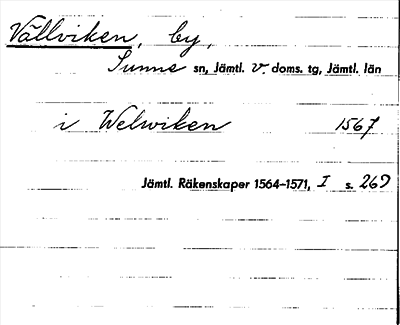 Vällviken, by,
Sunne sn, Jämtl. v. doms. tg, Jämtl. län
i Welwiken 1567
Jämtl. Räkenskaper 1564–1571, I s. 269